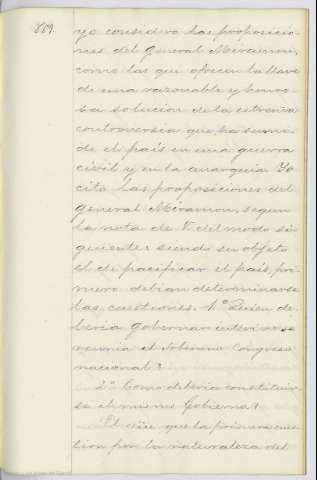 859.
yo considero las proposicio-
nes del General Miramon,
como las que ofrecen la llave
de una razonable y honro-
sa solucion de la estensa
controversia que ha sumi-
do el país en una guerra
civil y en la anarquia. Yo
cito las proposiciones del
General Miramon, segun
la nota de V. del modo si-
guiente: siendo su objeto
el de pacificar el país, pri-
mero debian determinarse
las cuestiones. 1º Quien de-
beria gobernar interin se
reunia el Soberano Congreso
nacional?
2º Como deberia constituir-
se el mismo Gobierno?
El que la primera cues-
tion por la naturaleza del